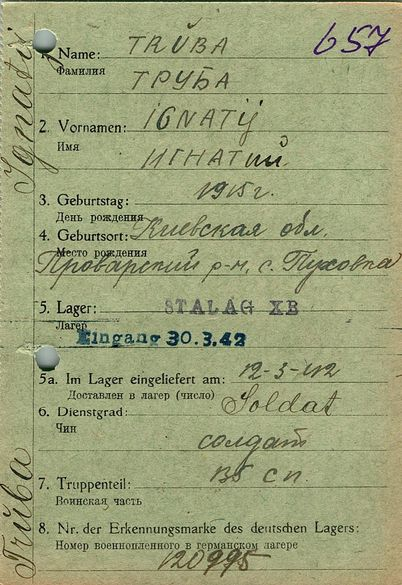 657
1. Name: TRŬBA
Фамилия ТРУБА
2. Vornamen: IGNATIJ
Имя ИГНАТИЙ
3. Geburtstag: 1915 г.
День рождения
4. Geburtsort: Киевская обл.
Место рождения
Проварский р-н, с. Пуховка
5. Lager: STALAG XB
Лагерь
Eingang 30.3.42
5a. Im Lager eingeliefert am: 12-3-42
Доставлен в лагерь (число)
6. Dienstgrad: Soldat
Чин солдат
7. Truppenteil: сп.
Воинская часть
8. Nr. der Erkennungsmarke des deutschen Lagers:
Номер военнопленного в германском лагере
120995
Trŭba Ignatij